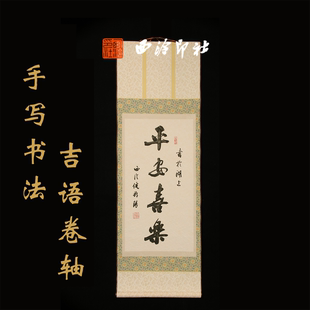 西泠印社
手写书法
吉语卷轴
平安喜乐